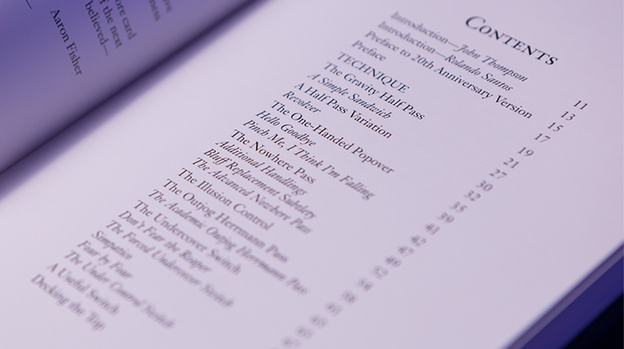 ore card
of the next
believed—
Aaron Fisher
CONTENTS
Introduction—John Thompson 11
Introduction—Rolando Santos 13
Preface to 20th Anniversary Version 15
Preface 17
TECHNIQUE 19
The Gravity Half Pass 21
A Simple Sandwich
A Half Pass Variation
Revolver
The One-Handed Popover
Hello Goodbye
Pinch Me, I Think I'm Falling
The Nowhere Pass
Additional Handlings
Bluff Replacement Subtlety
The Advanced Nowhere Pass
The Illusion Control
The Outjog Herrmann Pass
The Academic Outjog Herrmann Pass
The Undercover Switch
Don't Fear the Reaper
The Forced Undercover Switch
Sympatico
Fear by Four
The Under Control Switch
A Useful Switch
Decking the Top